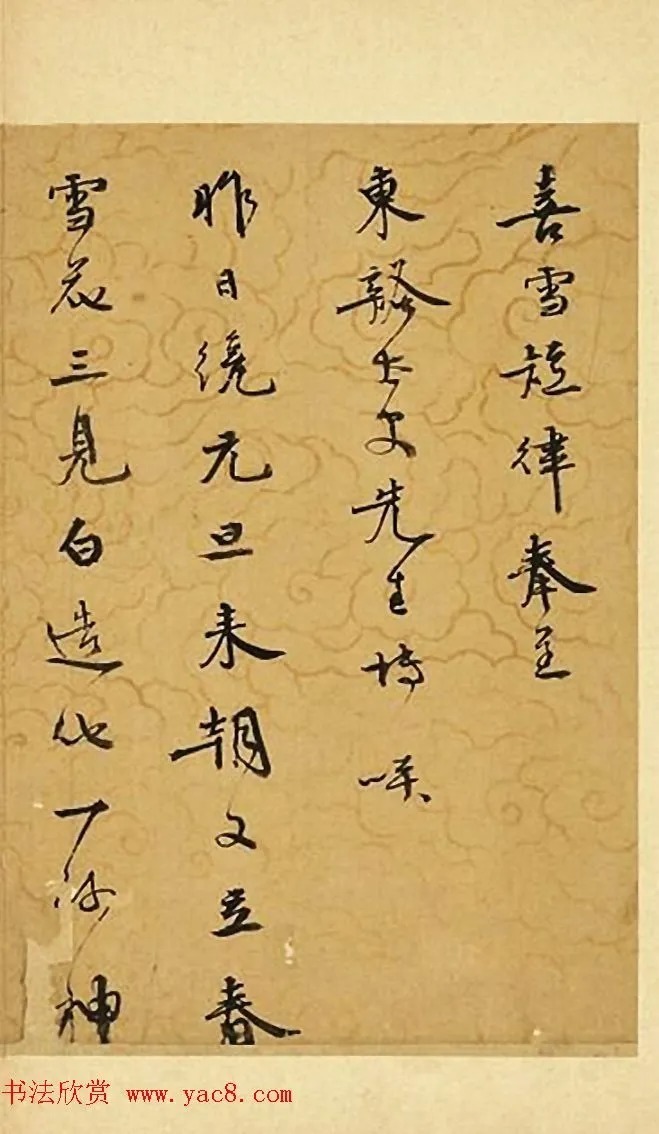 喜雪短律奉呈
東谿太史先生博咲
昨日纔元旦来朝又立春
雪花三見白造化一何神
书法欣赏 www.yac8.com